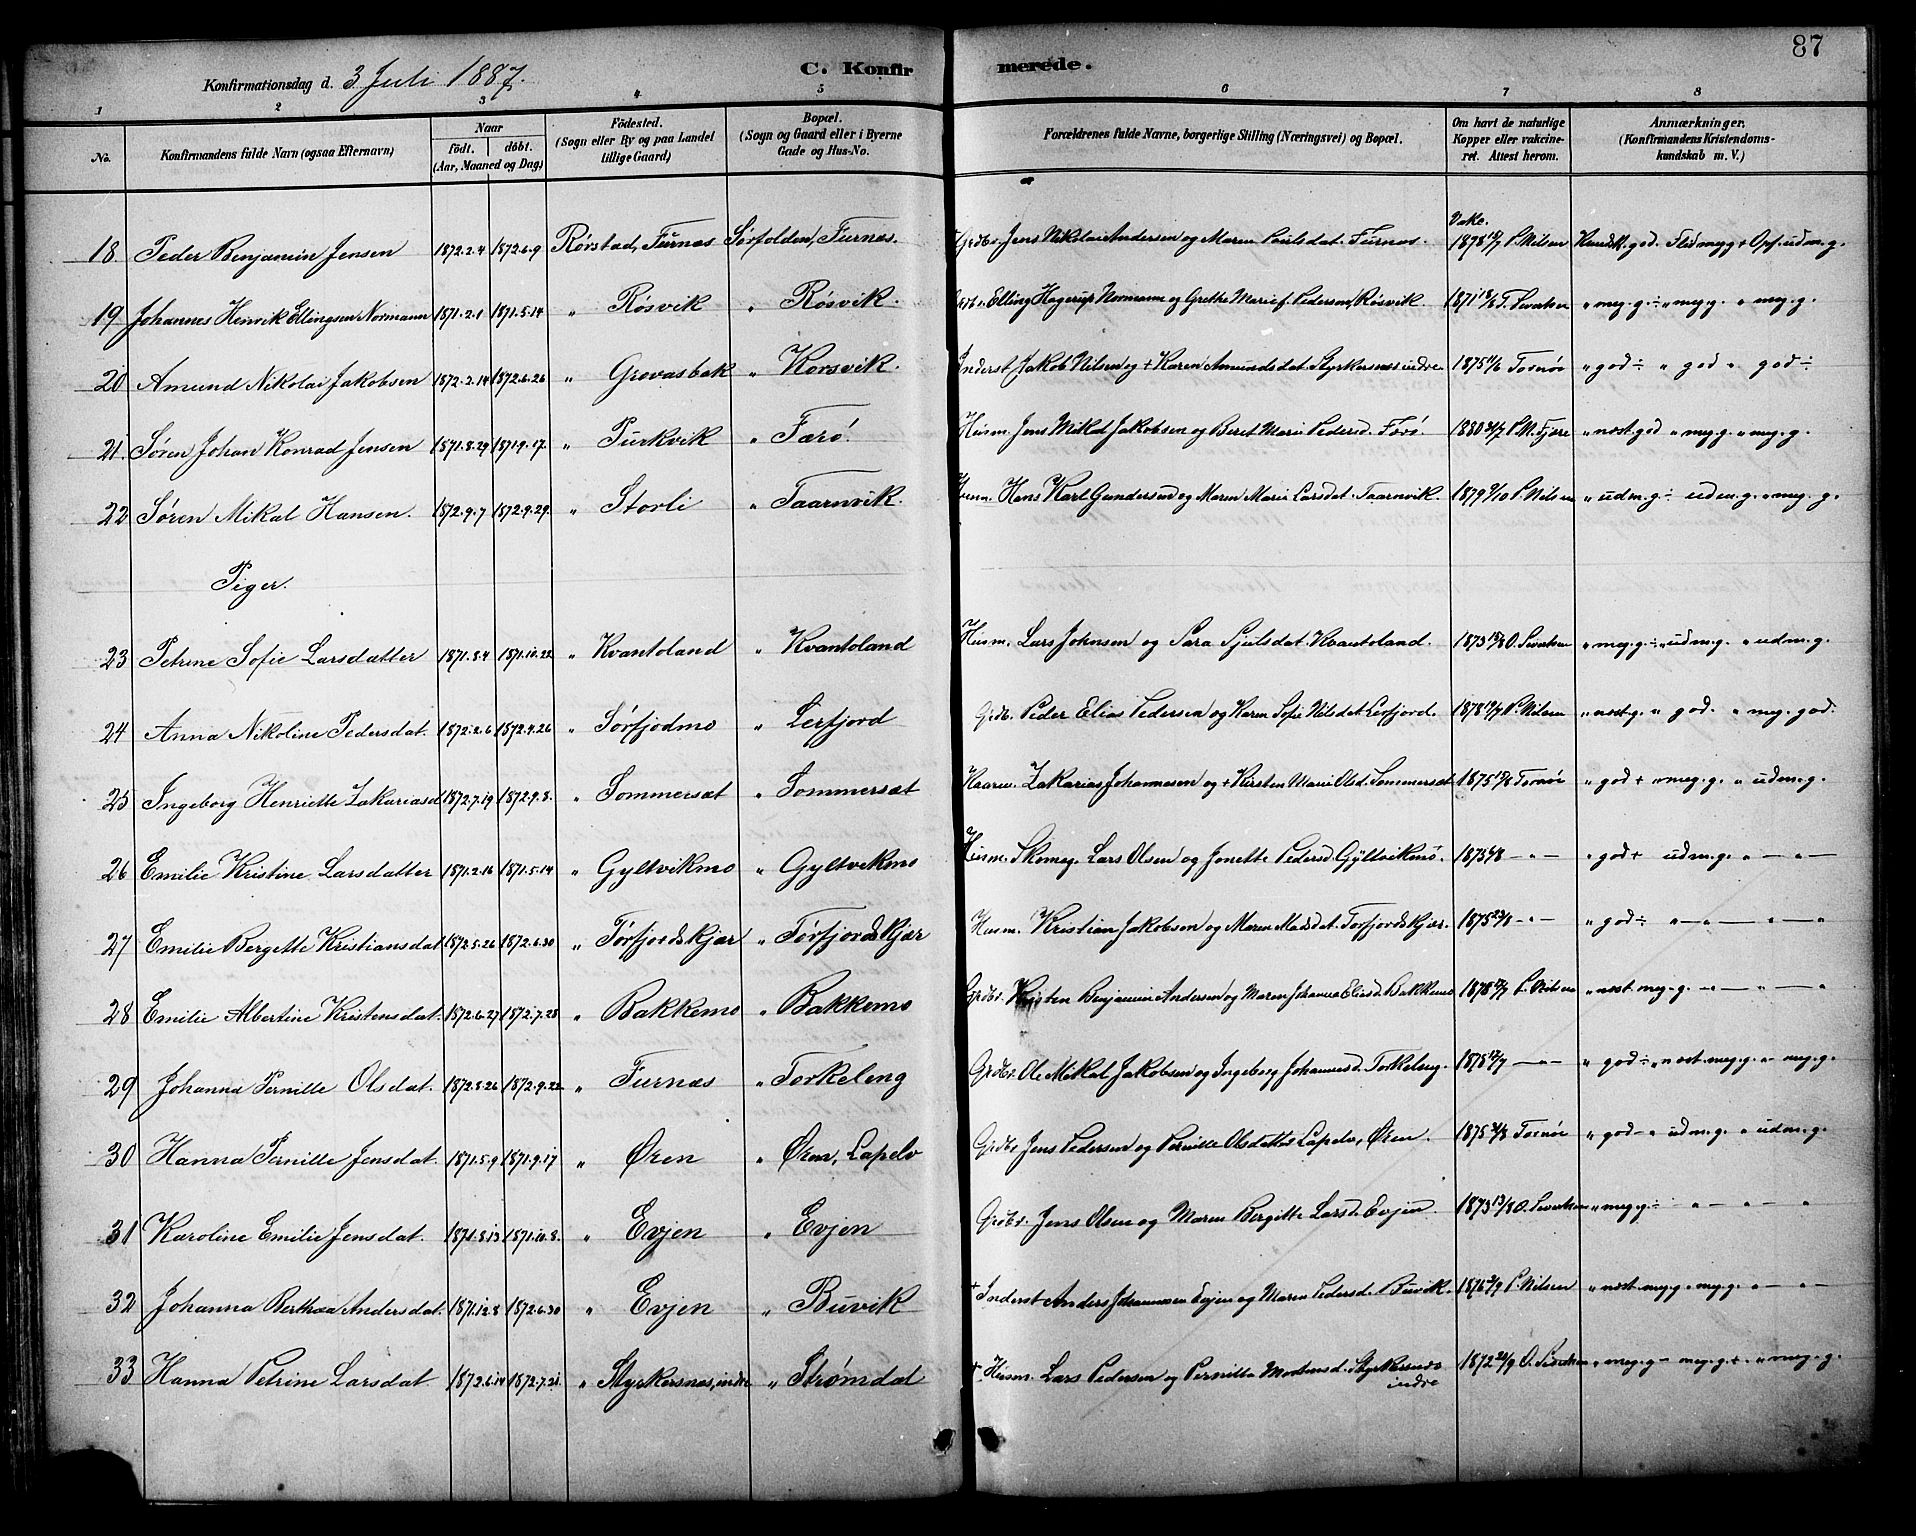 87
Konfirmationsdag d. 3 Juli 1887.
C. Konfirmerede.
1 2 3 4 5 6 7 8
No. Konfirmandens fulde Navn (ogsaa Efternavn) Naar födt. döbt. (Aar, Maaned og Dag) Födested. (Sogn eller By og paa Landet tillige Gaard) Bopæl. (Sogn og Gaard eller i Byerne Gade og Hus-No. Forældrenes fulde Navne, borgerlige Stilling (Næringsvei) og Bopæl. Om havt de naturlige Kopper eller vakcineret. Attest herom. Anmærkninger, (Konfirmandens Kristendomskundskab m. V.)
18 Peder Benjamin Jensen 1872.2.4 1872.6.9 Rørstad, Furnæs Sørfolden, Furnæs. Grdbr. Jens Nikolai Andersen og Maren Poulsdat. Furnæs. Vakc. 1878 P. Nilsen Kundsk. god. Flid meg g + Opf. udm. g.
19 Johannes Henrik Ellingsen Normann 1871.2.1 1871.5.14 " Røsvik " Røsvik. Grdbr. Elling Hagerup Normann og Grethe Marie f. Pedersen, Røsvik 1871 18/6 T. Sivertsen " meg. g ÷ " meg. g. " meg. g.
20 Amund Nikolai Jakobsen 1872.2.14 1872.6.26 " Grovasbak " Korsvik. Inderst Jakob Nilsen og + Karen Amundsdat. Styrkersnæs indre 1875 11/6 Tornøe " god ÷ " god " god ÷
21. Søren Johan Konrad Jensen 1871.8.29 1871.9.17. " Purkvik " Færø. Husm. Jens Mikal Jakobsen og Beret Marie Pedersd. Færø 1880 P. M. Fjære " nost. god " meg. g. " meg. g.
22 Søren Mikal Hansen. 1872.9.7 1872.9.29. " Storli " Taarnvik. Husm. Hans Karl Gundersen og Maren Marie Larsdat. Taarnvik. 1879 9/10 P. Nilsen " udm. g ÷ udm. g. " meg. g.
Piger.
23 Petrine Sofie Larsdatter 1871.8.4 1871.10.22 " Kvantoland " Kvantoland Husm. Lars Johnsen og Sara Sjulsdat. Kvantoland. 1873 13/8 O. Sivertsen " meg. g ÷ " udm. g. " udm. g.
24 Anna Nikoline Pedersdat. 1872.2.6 1872.4.26 " Sørfjodmo " Lerfjord Grdb. Peder Elias Pedersen og Karen Sofie Nilsdat. Lerfjord. 1878 17/7 P. Nilsen " nost. g. " god. " meg. god.
25 Ingeborg Henriette Zakariasd 1872.7.19 1872.9.8. " Sommersæt " Sommersæt Kaarm. Zakarias Johannesen og + Kirsten Marie Olsd. Sommersæt 1875 Tornøe " god + " meg. g. " udm. g.
26 Emilie Kristine Larsdatter 1871.2.16 1871.5.14 " Gyltvikmo " Gyltvikmo Husm. Skomag. Lars Olsen og Jonette Pedersd. Gyltvikmo. 1875 — " — " god + udm. g. " — " —
27 Emilie Bergette Kristiansdat 1872.5.26 1872.6.30 " Tørfjordskjær " Tørfjordskjær Husm. Kristian Jakobsen og Maren Madsdat. Torfjordskjær. 1875 23/8 — " — " god ÷ " — " — " — "
28 Emilie Albertine Kristensdat. 1872.6.27 1872.7.28 " Bakkemo " Bakkemo Grdbr. Kristen Benjamin Andersen og Maren Johanna Eliasd. Bakkemo 1878 P. Nilsen " nost. meg. g. — " — " — "
29 Johanna Pernille Olsdat. 1872.8.26 1872.9.22 " Furnæs " Torkeleng Grdbr. Ole Mikal Jakobsen og Ingeborg Johannesd. Torkeleng. 1878 17/7 — " — " god ÷ " nost. meg. g. " meg. g.
30 Hanna Pernille Jensdat. 1871.5.9 1871.9.17 " Øren " Øren, Lapelv Grdbr. Jens Pedersen og Pernille Olsdatter Lapelv, Øren. 1875 Tornøe " god — " udm. g. " udm. g.
31 Karoline Emilie Jensdat. 1871.8.13 1871.10.8. " Evjen " Evjen Grdbr. Jens Olsen og Maren Bergitte Larsd. Evjen 1873 13/8 O. Sivertsen " meg. g ÷ " — " — "
32 Johanna Berthea Andersdat. 1871.12.8 1872.6.30 " Evjen " Buvik + Inderst Anders Johannesen Evjen og Maren Pedersd. Buvik. 1876 P. Nilsen " nost. meg. g " meg. g. " — " —
33 Hanna Petrine Larsdat. 1872.6.14 1872.7.21. " Styrkersnæs, indre " Strømdal + Husm. Lars Pedersen og Pernilla Mortensd. Styrkersnæs indre 1872 O. Sivertsen " meg. g — meg. g + . " meg. g.